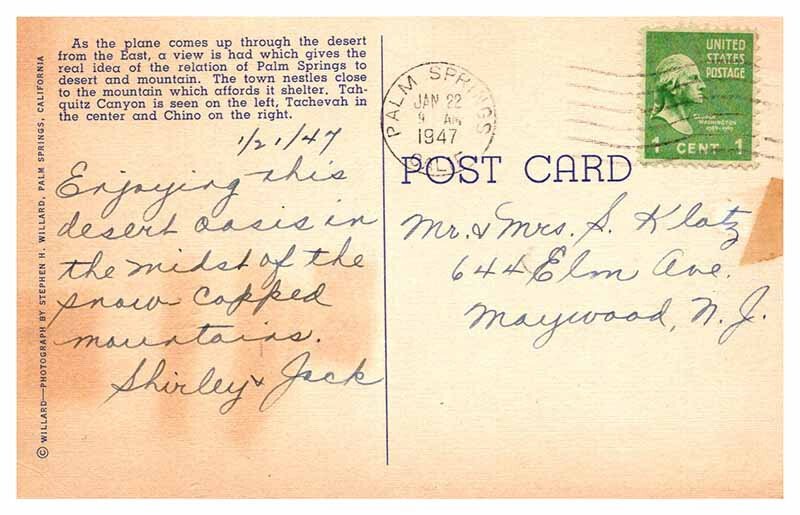 As the plane comes up through the desert
from the East, a view is had which gives the
real idea of the relation of Palm Springs to
desert and mountain. The town nestles close
to the mountain which affords it shelter. Tah-
quitz Canyon is seen on the left, Tachevah in
the center and Chino on the right.
© WILLARD—PHOTOGRAPH BY STEPHEN H. WILLARD, PALM SPRINGS, CALIFORNIA
1/21/47
Enjoying this
desert oasis in
the midst of the
snow capped
mountains.
Shirley & Jack
PALM SPRINGS
JAN 22
9 AM
1947
CALIF.
UNITED
STATES
POSTAGE
GEORGE
WASHINGTON
1789-1797
1 CENT 1
POST CARD
Mr. & Mrs. S. Klotz
644 Elm Ave.
Maywood, N. J.